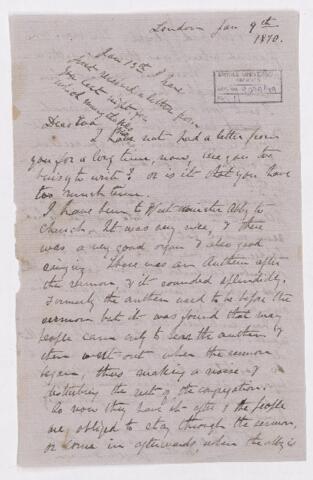 London Jan 9th
1870.
Jan 13th I have
just received a letter from
you last night for
which many thanks
Dear Eva
I have not had a letter from
you for a long time, now, are you too
busy to write? or is it that you have
too much
I have been to Westminster Abby to
Church. It was very nice, & there
was a very good organ & also good
singing. There was an Anthem after
the sermon, & it sounded splendidly.
Formerly the anthem used to be before the
sermon but it was found that many
people came only to hear the anthem &
then went out when the sermon
began, thus making a noise &
disturbing the rest of the congregation.
So now they have it after & the people
are obliged to stay through the sermon,
or come in afterwards, when the abby is